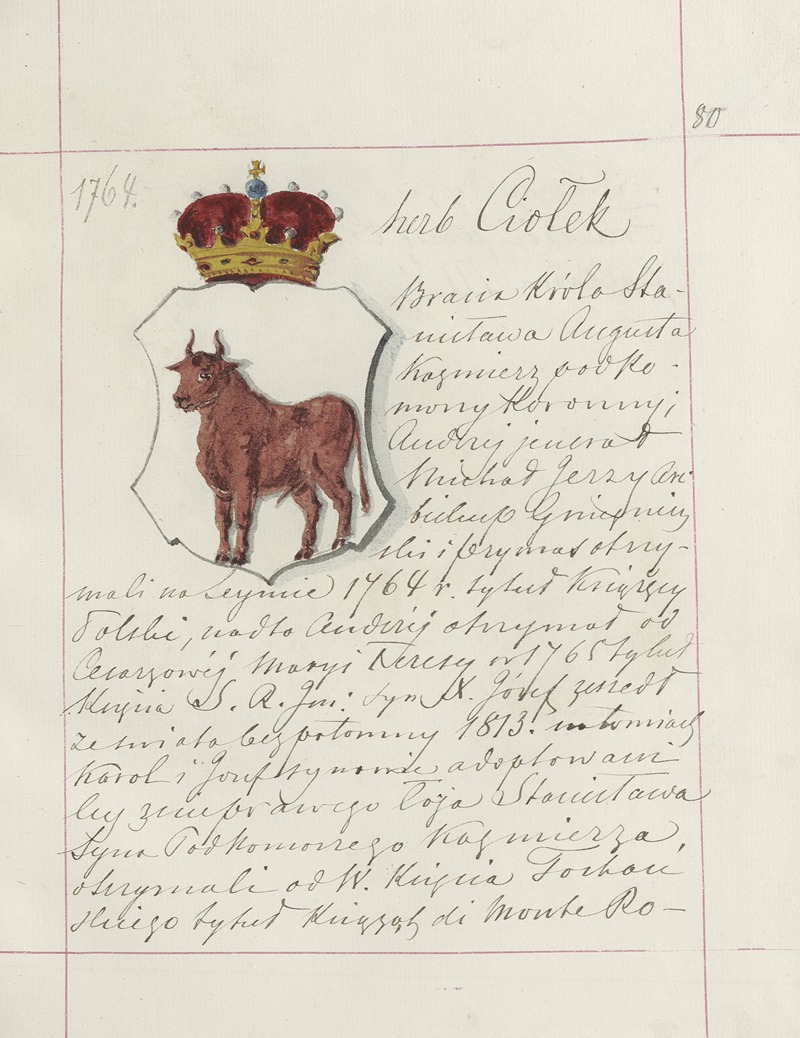 80
1764.
herb Ciołek
Bracia Króla Sta-
nisława Augusta
Kazmierz podko-
morzy Koronny,
Andrzej jenerał
Michał Jerzy Arci
biskup Gnieznień
ski i prymas otrzy-
mali na Sejmie 1764 r. tytuł Książęcy
Polski, nadto Andrzéj otrzymał od
Cesarzowéj Maryi Teresy w 1765 tytuł
Księcia S. R. Im: syn X. Józef zeszedł
ze świata bezpotomny 1813.
Karol i Józef synowie adoptowani
czy z nieprawego łoża Stanisława
Syna Podkomorzego Kazmierza,
otrzymali od W. Księcia Toskań
skiego tytuł Książąt di Monte Ro-